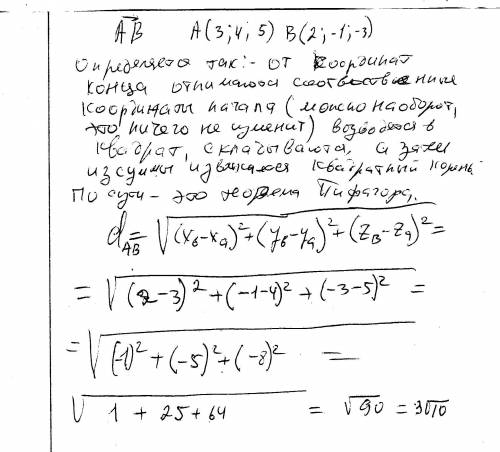 AB A(3;4;5) B(2;-1;-3)
Определяется так:- от координат
конца отнимаются соответственные
координаты начала (можно наоборот,
это ничего не изменит) возводятся в
квадрат, складываются, а затем
из суммы извлекается квадратный корень
По сути - это теорема Пифагора.
d_AB = √(x_B-x_a)²+(y_B-y_a)²+(z_B-z_a)² =
= √(2-3)²+(-1-4)²+(-3-5)² =
= √(-1)²+(-5)²+(-8)² =
√1+25+64 = √90 = 3√10